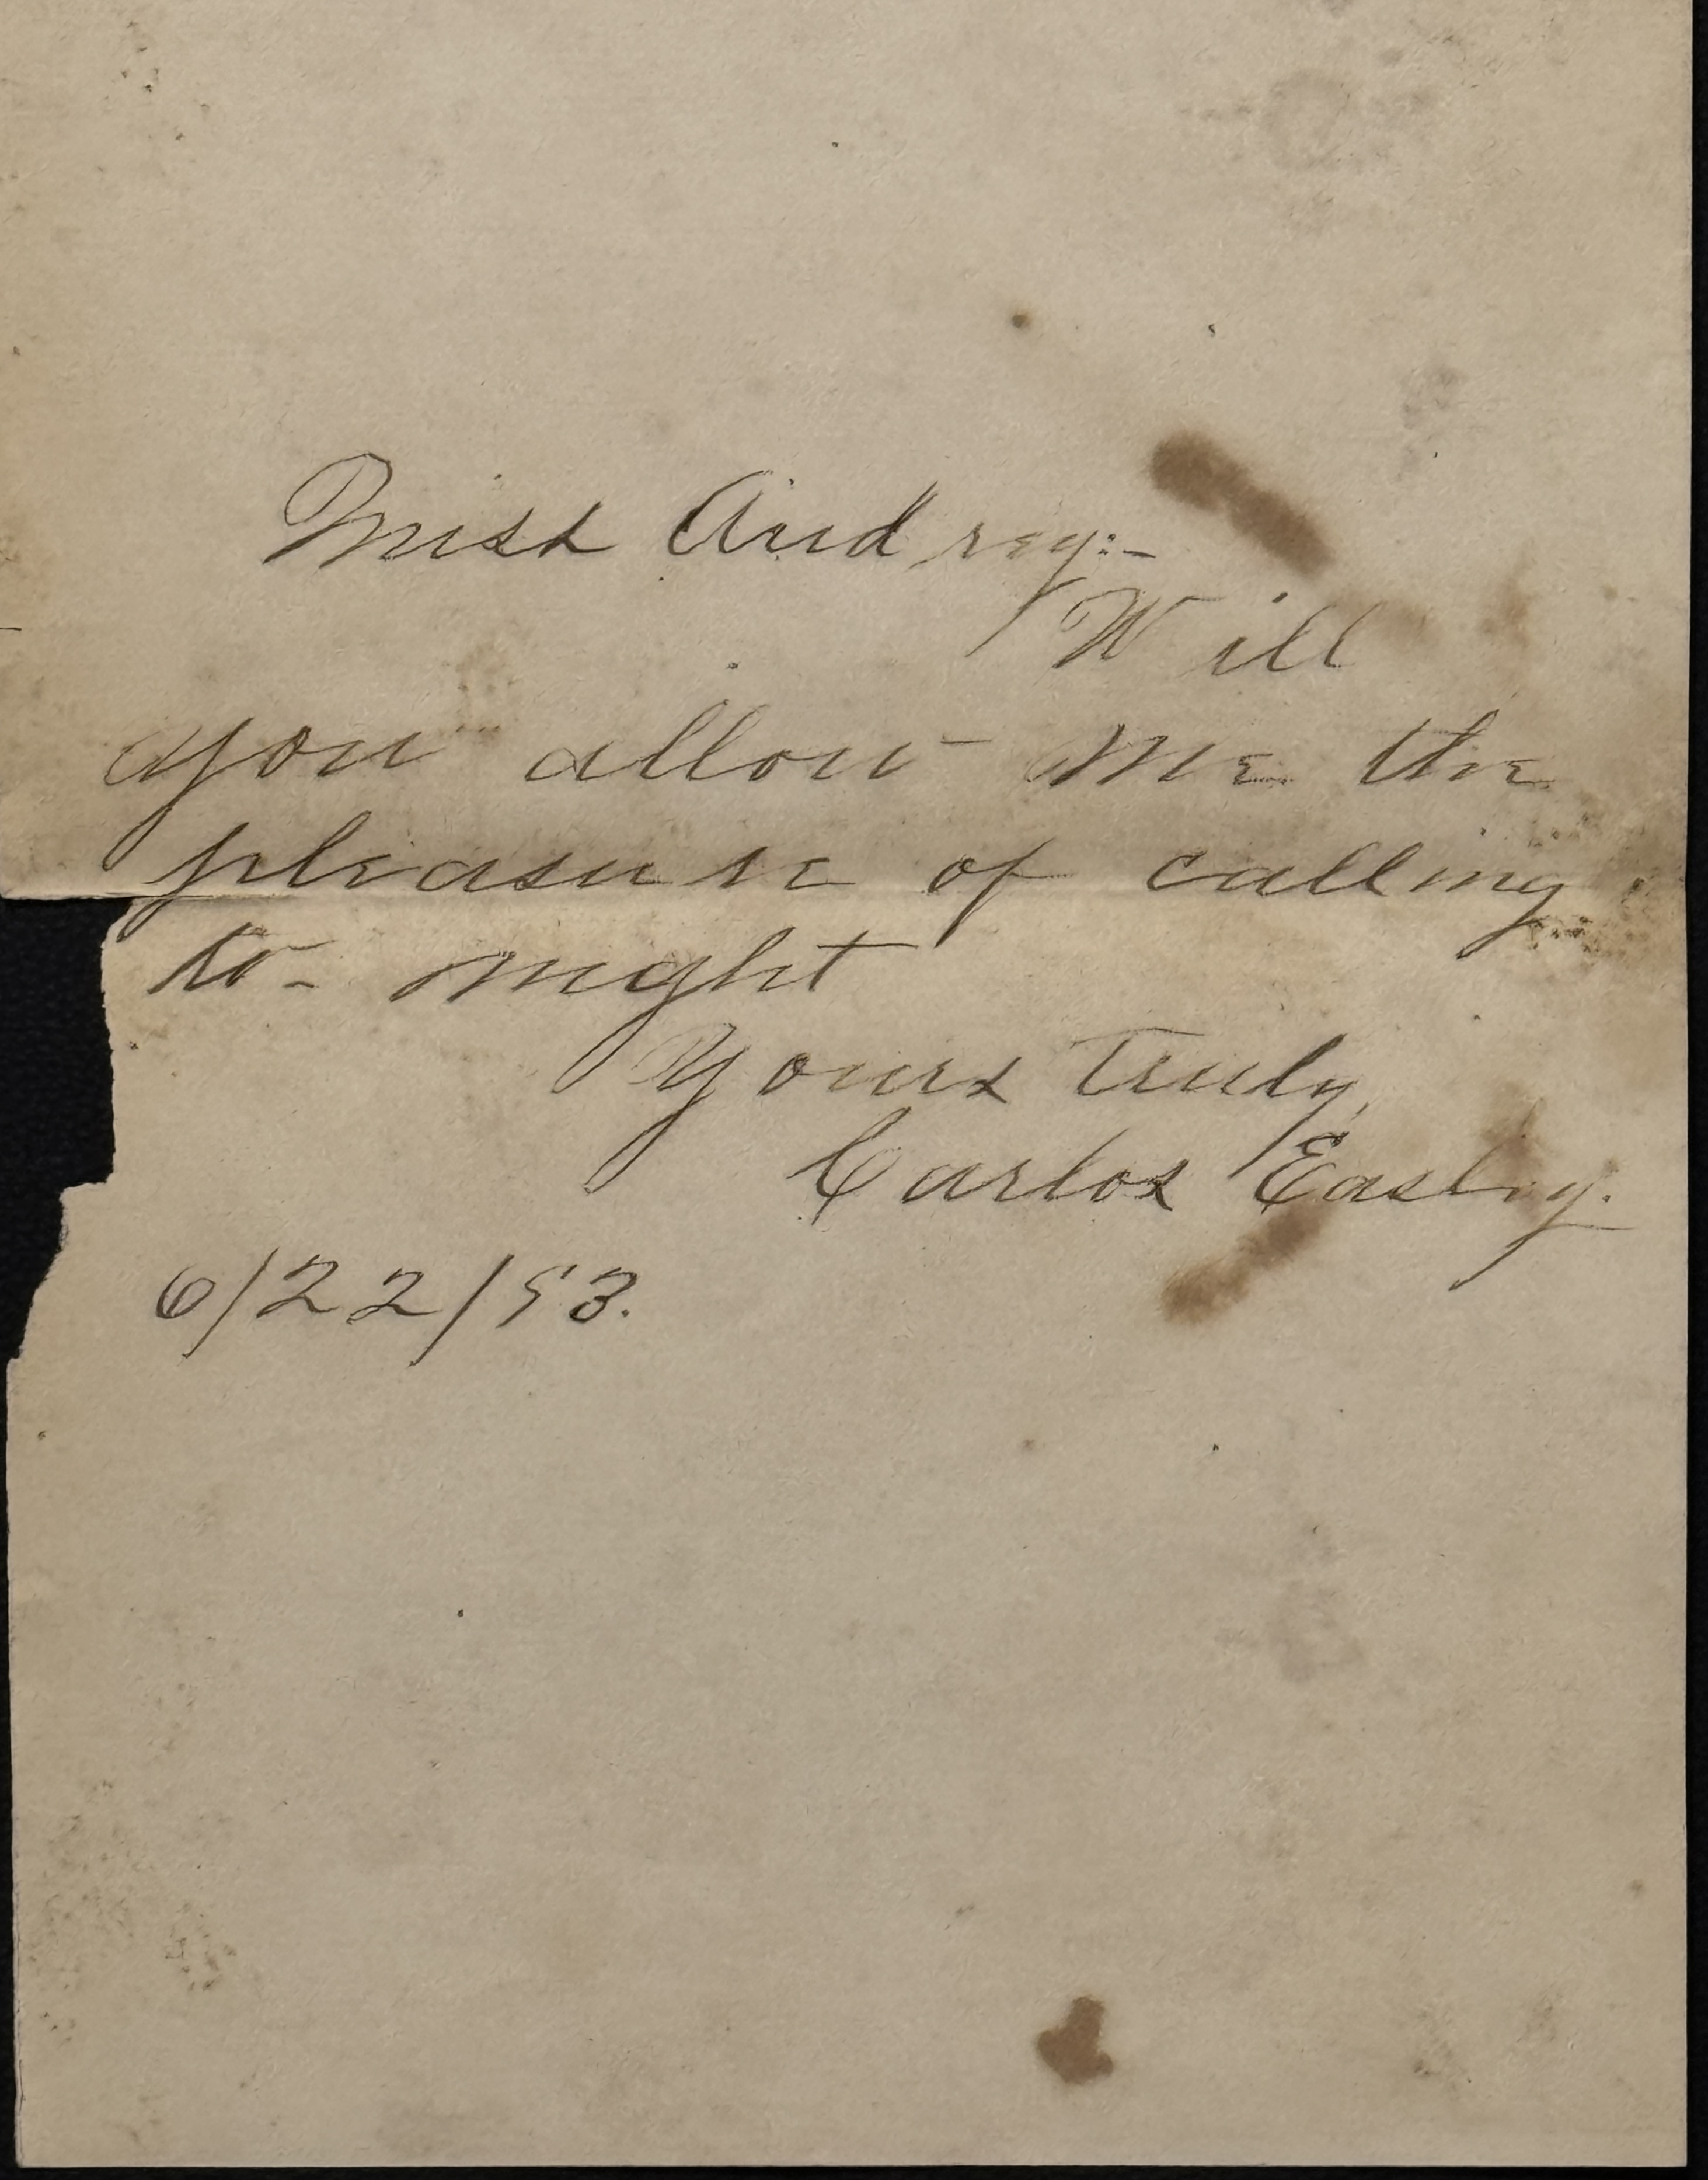 Miss Audrey:-
Will
you allow me the
pleasure of calling
to-night
Yours Truly,
Carlos Easley.
6/22/93.